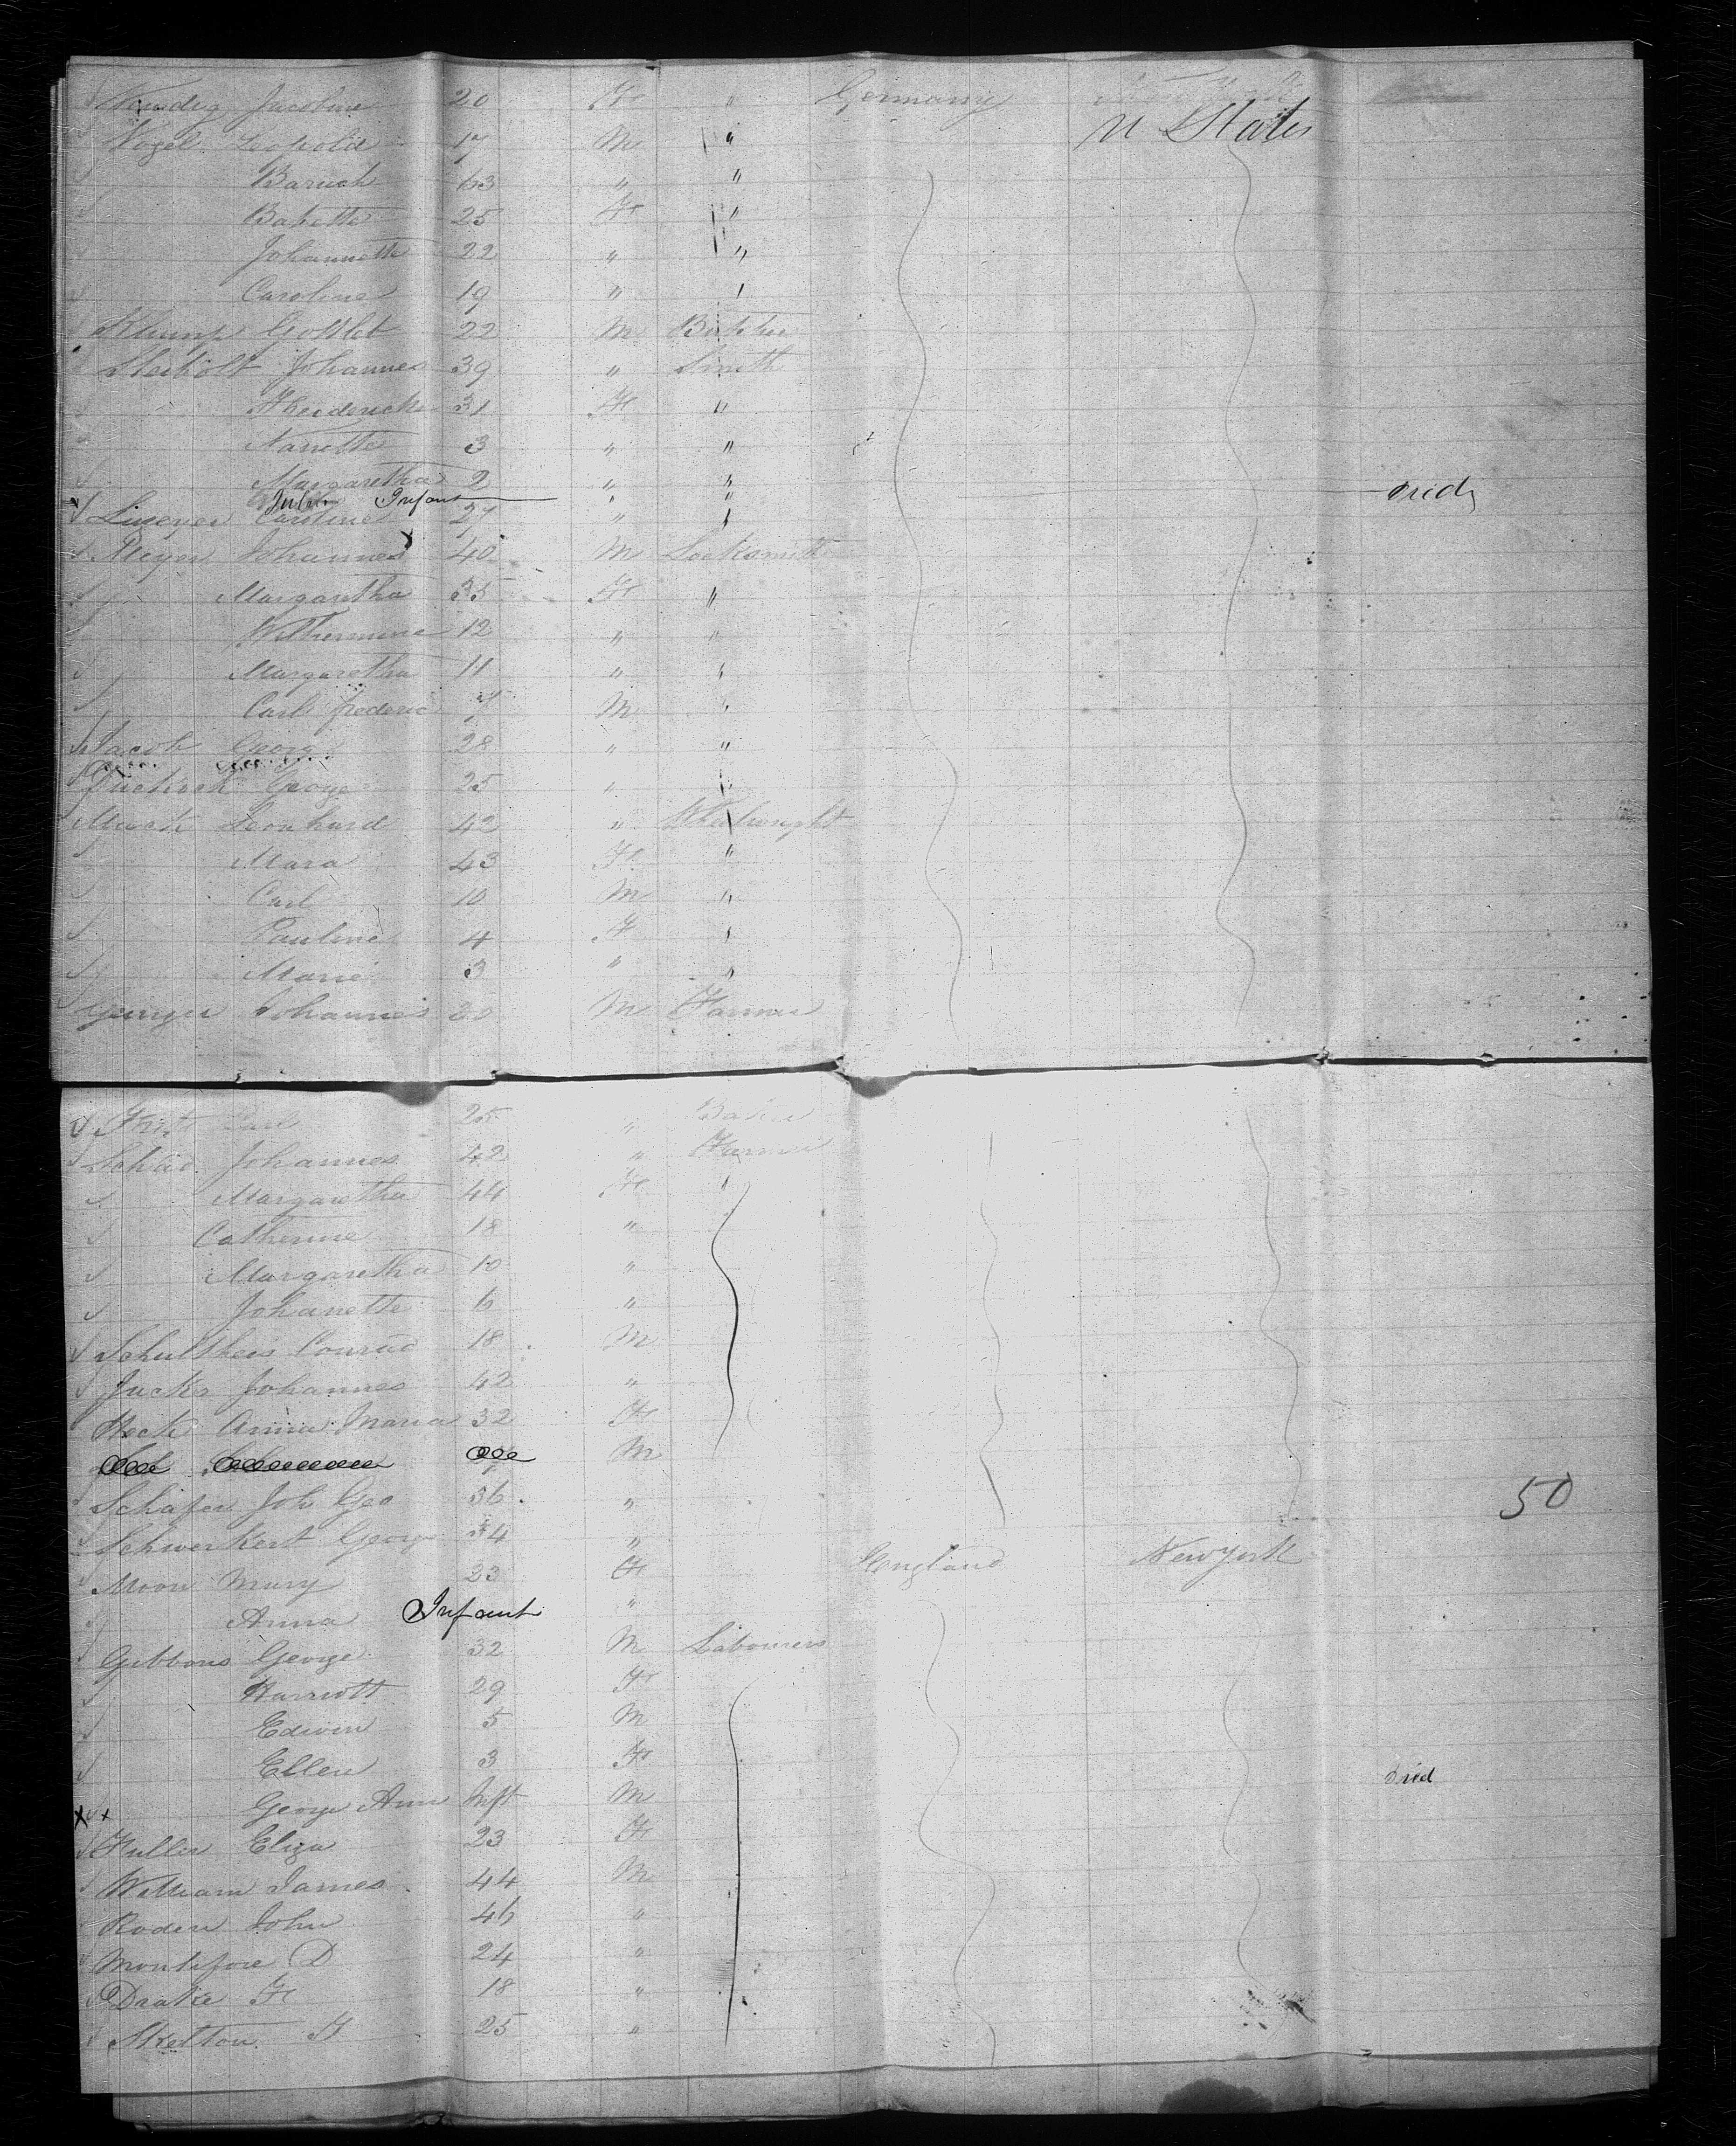 Jacobine 20 F " Germany
U States
Vogel Leopold 17 M "
Baruch 63 " "
Babette 25 F "
Johannette 22 " "
Caroline 19 " "
Klump Gottlob 22 M Butcher
Johannes 39 " Smith
31 F "
Nanette 3 " "
Margaretha 2 " "
Infant " " Died
Caroline 27 " "
Meyer Johannes 40 M Locksmith
Margaretha 35 F "
Wilhermine 12 " "
Margaretha 11 " "
Carl Frederic M "
Jacob Georg 28 " "
George 25 " "
Muck Leonhard 42 " Wheelwright
Mara 43 F "
Carl 10 M "
Pauline 4 F "
Marie 3 " "
Johannes 20 M Farmer
Carl 25 " Baker
Schad Johannes 42 " Farmer
Margaretha 44 F "
Catherine 18 "
Margaretha 10 "
Johanette 6 "
Schultheis Conrad 18 M
Jucks Johannes 42 "
Heck Anna Maria 32 F
M
Schafer Joh Geo 36 " 50
Schwerkert Georg 34 "
Moon Mary 23 F England New York
Anna Infant "
Gibbons George 32 M Labourers
Harriott 29 F
Edwin 5 M
Ellen 3 F
George Ann Inft M Died
Fuller Eliza 23 F
William James 44 M
Roden John 46 "
Montifore D 24 "
Drake F 18 "
Skelton 25 "